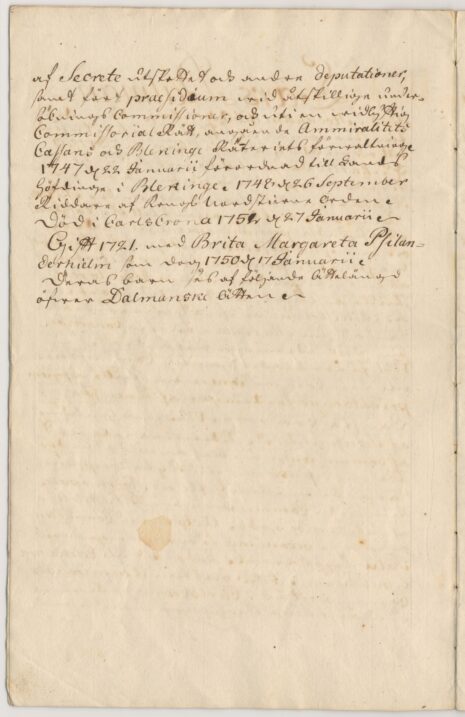 af Secrete utskottet och andre deputationer,
samt fört præsidium wid åtskillige under-
söknings Commissioner, och uti en widlyftig
Commissorial Rätt, angående Ammiralitets
Cassans och Blekinge Räteriets förwaltning
1747 d 22 Januarii förordnad till Lands
Höfdinge i Blekinge. 1748 d 26 September
Riddare af Kongl Nordstierne Orden.
Död i Carlscrona 1751 d 27 Januarii.
Gift 1721. med Brita Margareta Psilan-
derhielm som dog 1750 d 17 Januarii.
Deras barn ses af följande ättelängd
öfwer Dalmanske ätten.